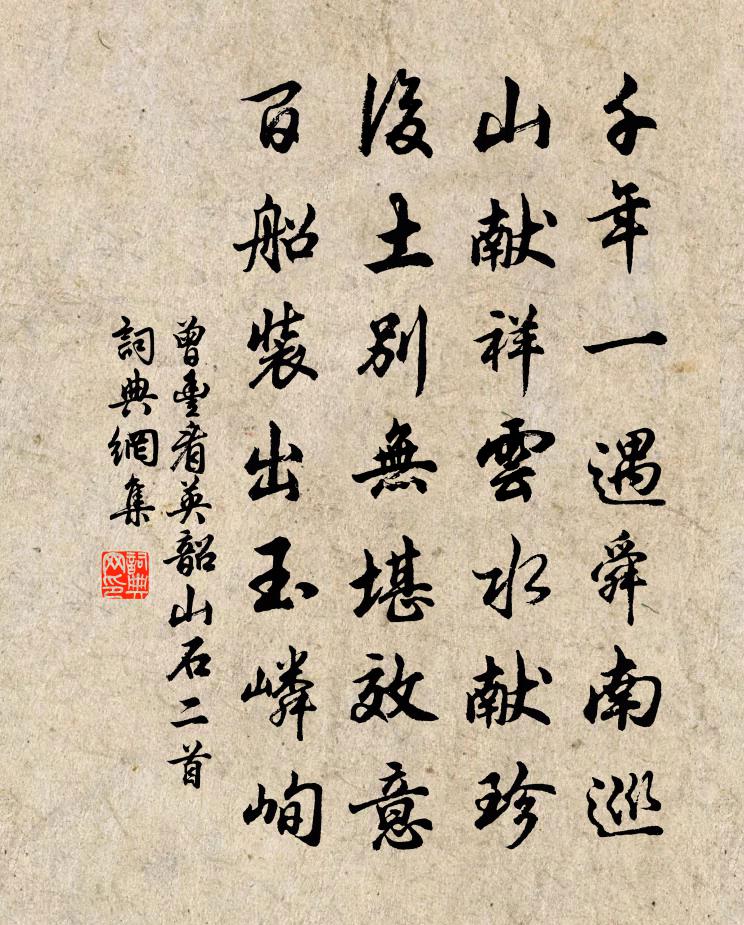 千年一遇舜南巡
山献祥雲水献珍
後土別無堪效意
百船裝出玉嶙峋
曾豐看英韶山石二首
詞典網集
詞典
网印